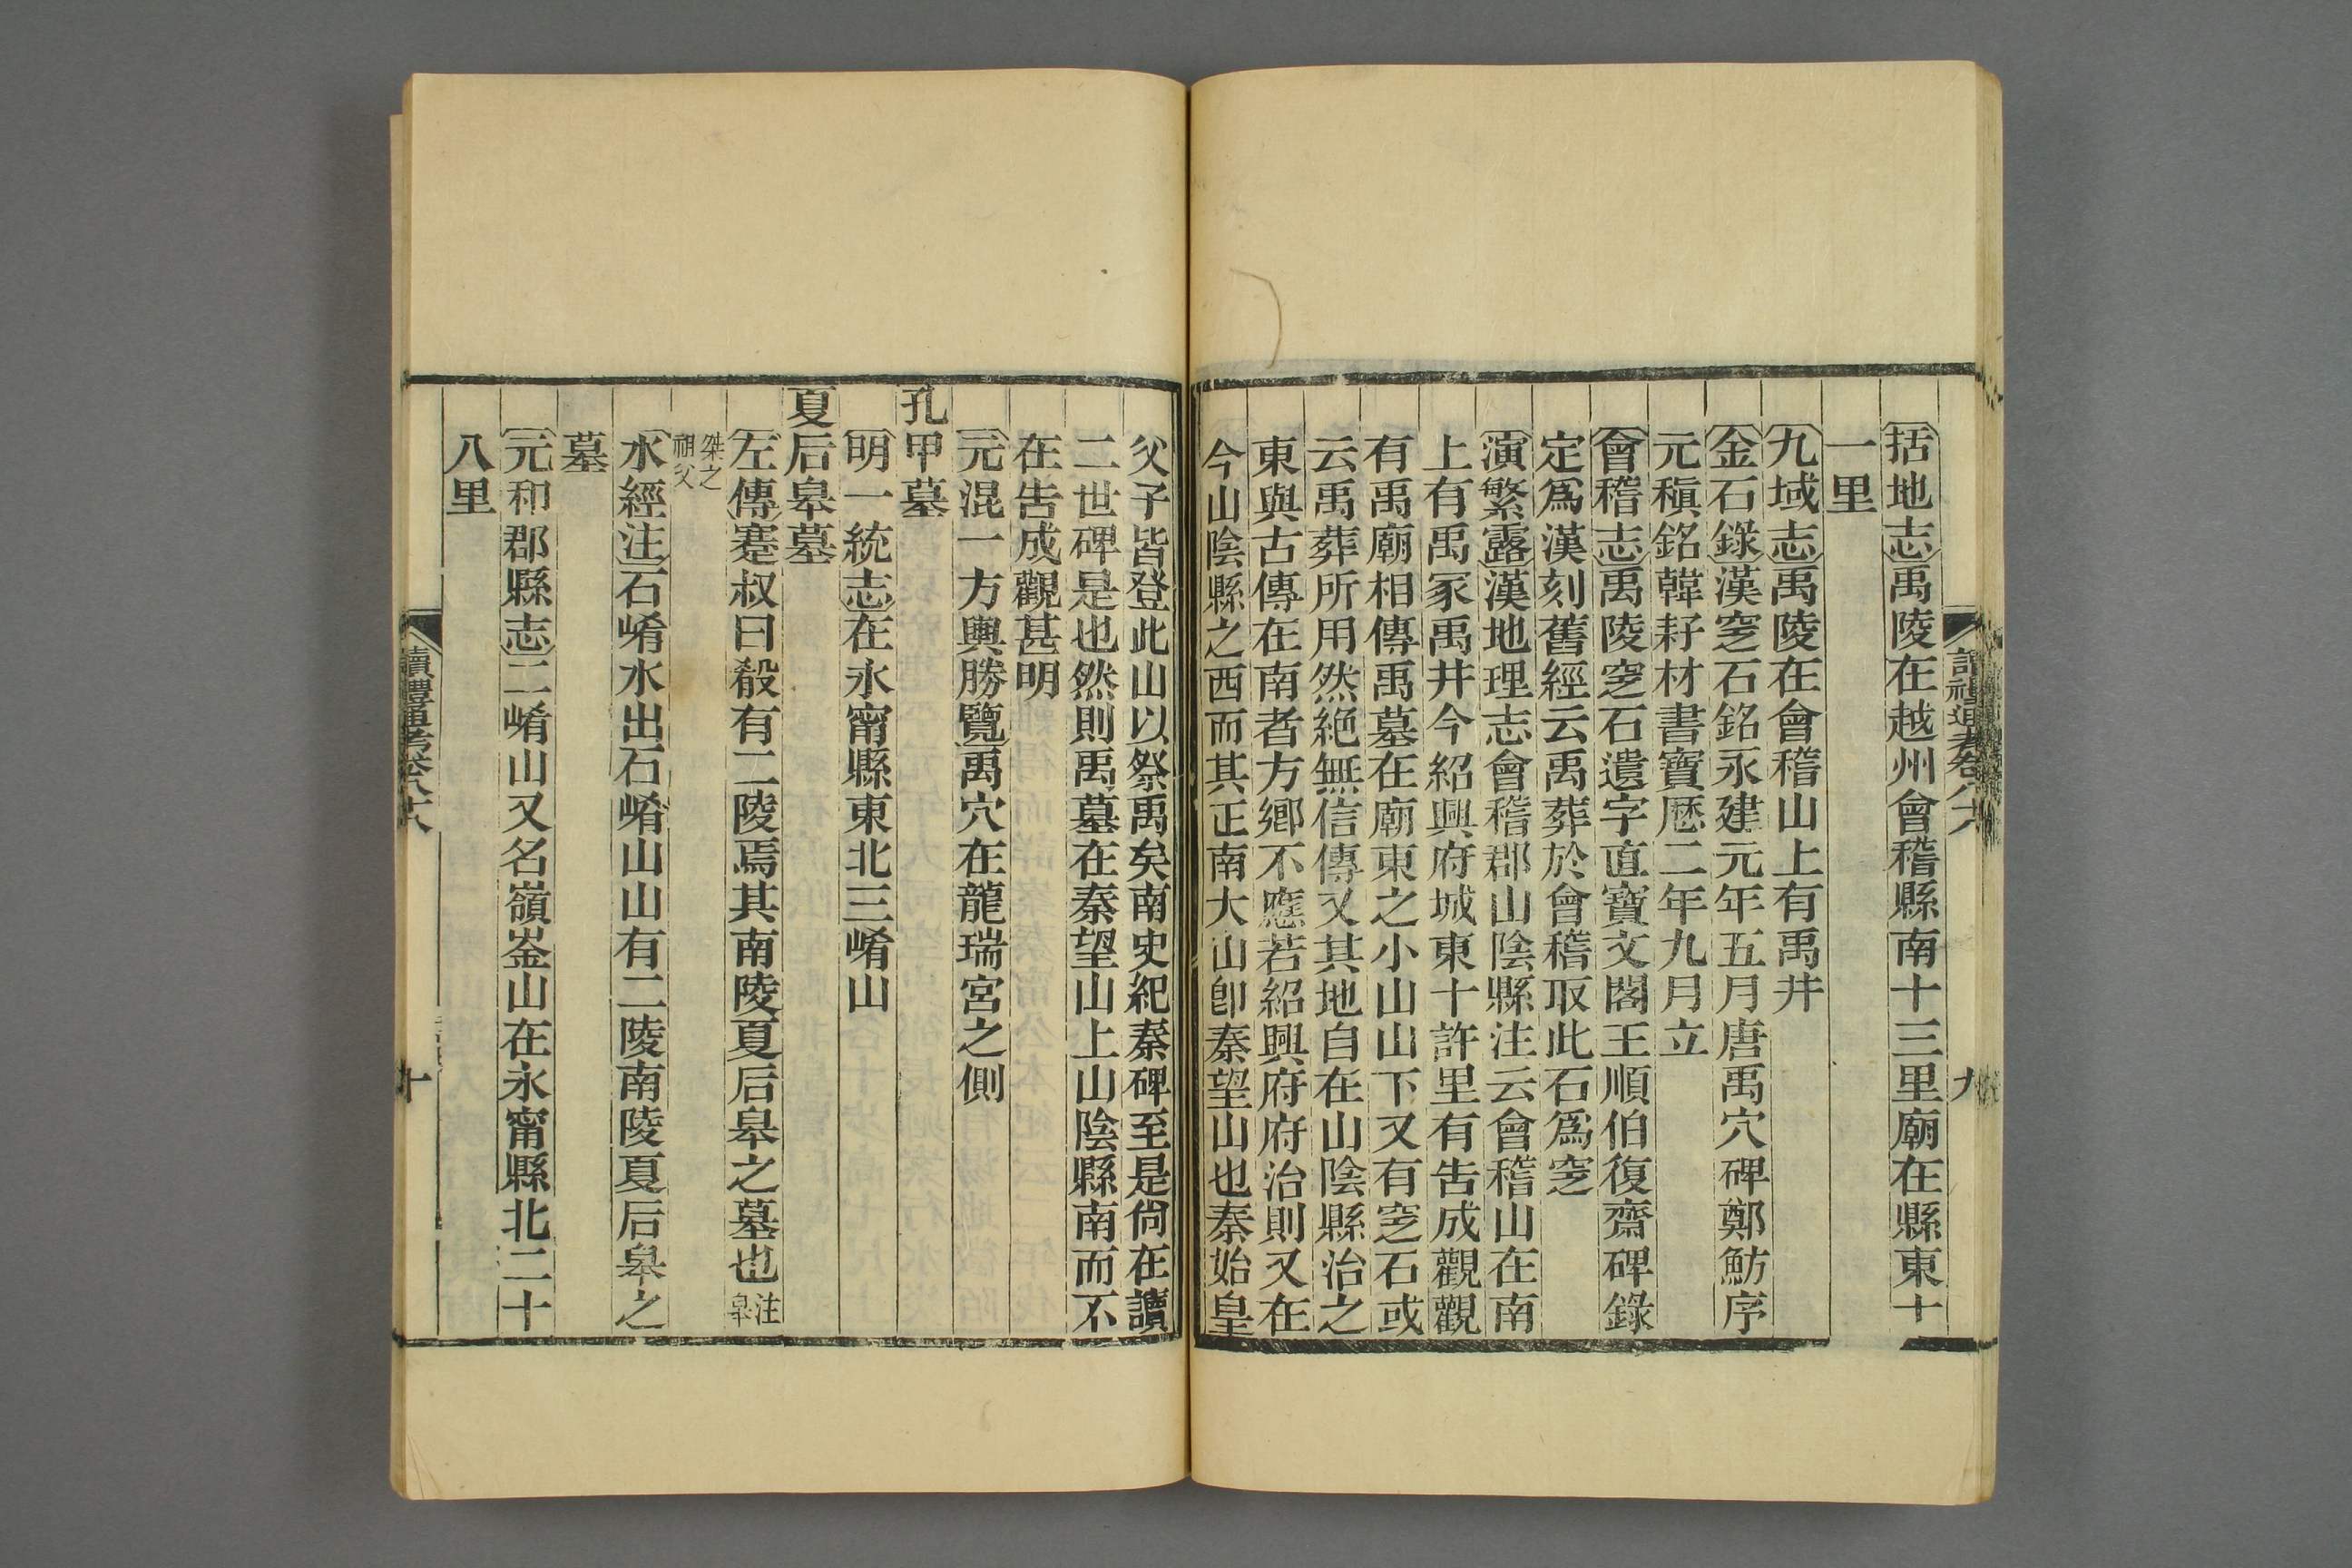 括地志禹陵在越州會稽縣南十三里廟在縣東十
一里
九域志禹陵在會稽山上有禹井
金石錄漢窆石銘永建元年五月唐禹穴碑鄭魴序
元稹銘韓杍材書寶歷二年九月立
會稽志禹陵窆石遺字直寶文閣王順伯復齋碑錄
定爲漢刻舊經云禹葬於會稽取此石爲窆
演繁露漢地理志會稽郡山陰縣注云會稽山在南
上有禹冢禹井今紹興府城東十許里有告成觀觀
有禹廟相傳禹墓在廟東之小山山下又有窆石或
云禹葬所用然絕無信傳又其地自在山陰縣治之
東與古傳在南者方鄉不應若紹興府府治則又在
今山陰縣之西而其正南大山卽秦望山也秦始皇
父子皆登此山以祭禹矣南史紀秦碑至是尙在讀
二世碑是也然則禹墓在秦望山上山陰縣南而不
在告成觀甚明
元混一方輿勝覽禹穴在龍瑞宮之側
孔甲墓
明一統志在永甯縣東北三崤山
夏后皋墓
左傳蹇叔曰殽有二陵焉其南陵夏后皋之墓也注皋
桀之祖父
水經注石崤水出石崤山山有二陵南陵夏后皋之
墓
元和郡縣志二崤山又名嶺崟山在永甯縣北二十
八里
讀禮通考卷八十六
九
十